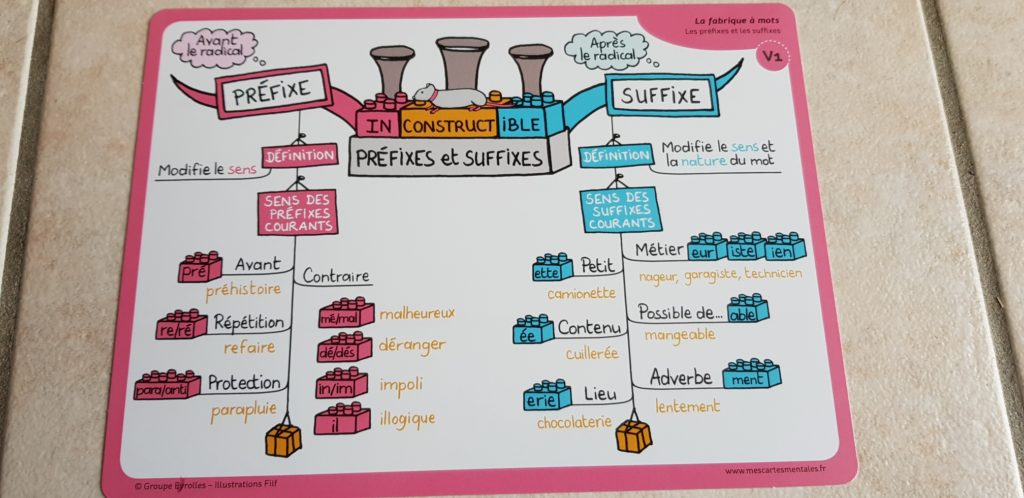 La fabrique à mots
Les préfixes et les suffixes
V1
Avant
le radical
Après
le radical
PRÉFIXE
SUFFIXE
IN CONSTRUCT iBLE
PRÉFIXES et SUFFIXES
DÉFINITION
Modifie le sens
SENS DES
PRÉFIXES
COURANTS
pré Avant
préhistoire
re/ré Répétition
refaire
para/anti Protection
parapluie
Contraire
mé/mal malheureux
dé/dés déranger
in/im impoli
il illogique
DÉFINITION
Modifie le sens et
la nature du mot
SENS DES
SUFFIXES
COURANTS
ette Petit
camionette
ée Contenu
cuillerée
erie Lieu
chocolaterie
Métier eur iste ien
nageur, garagiste, technicien
Possible de... able
mangeable
Adverbe ment
lentement
© Groupe Eyrolles – Illustrations Filf
www.mescartesmentales.fr